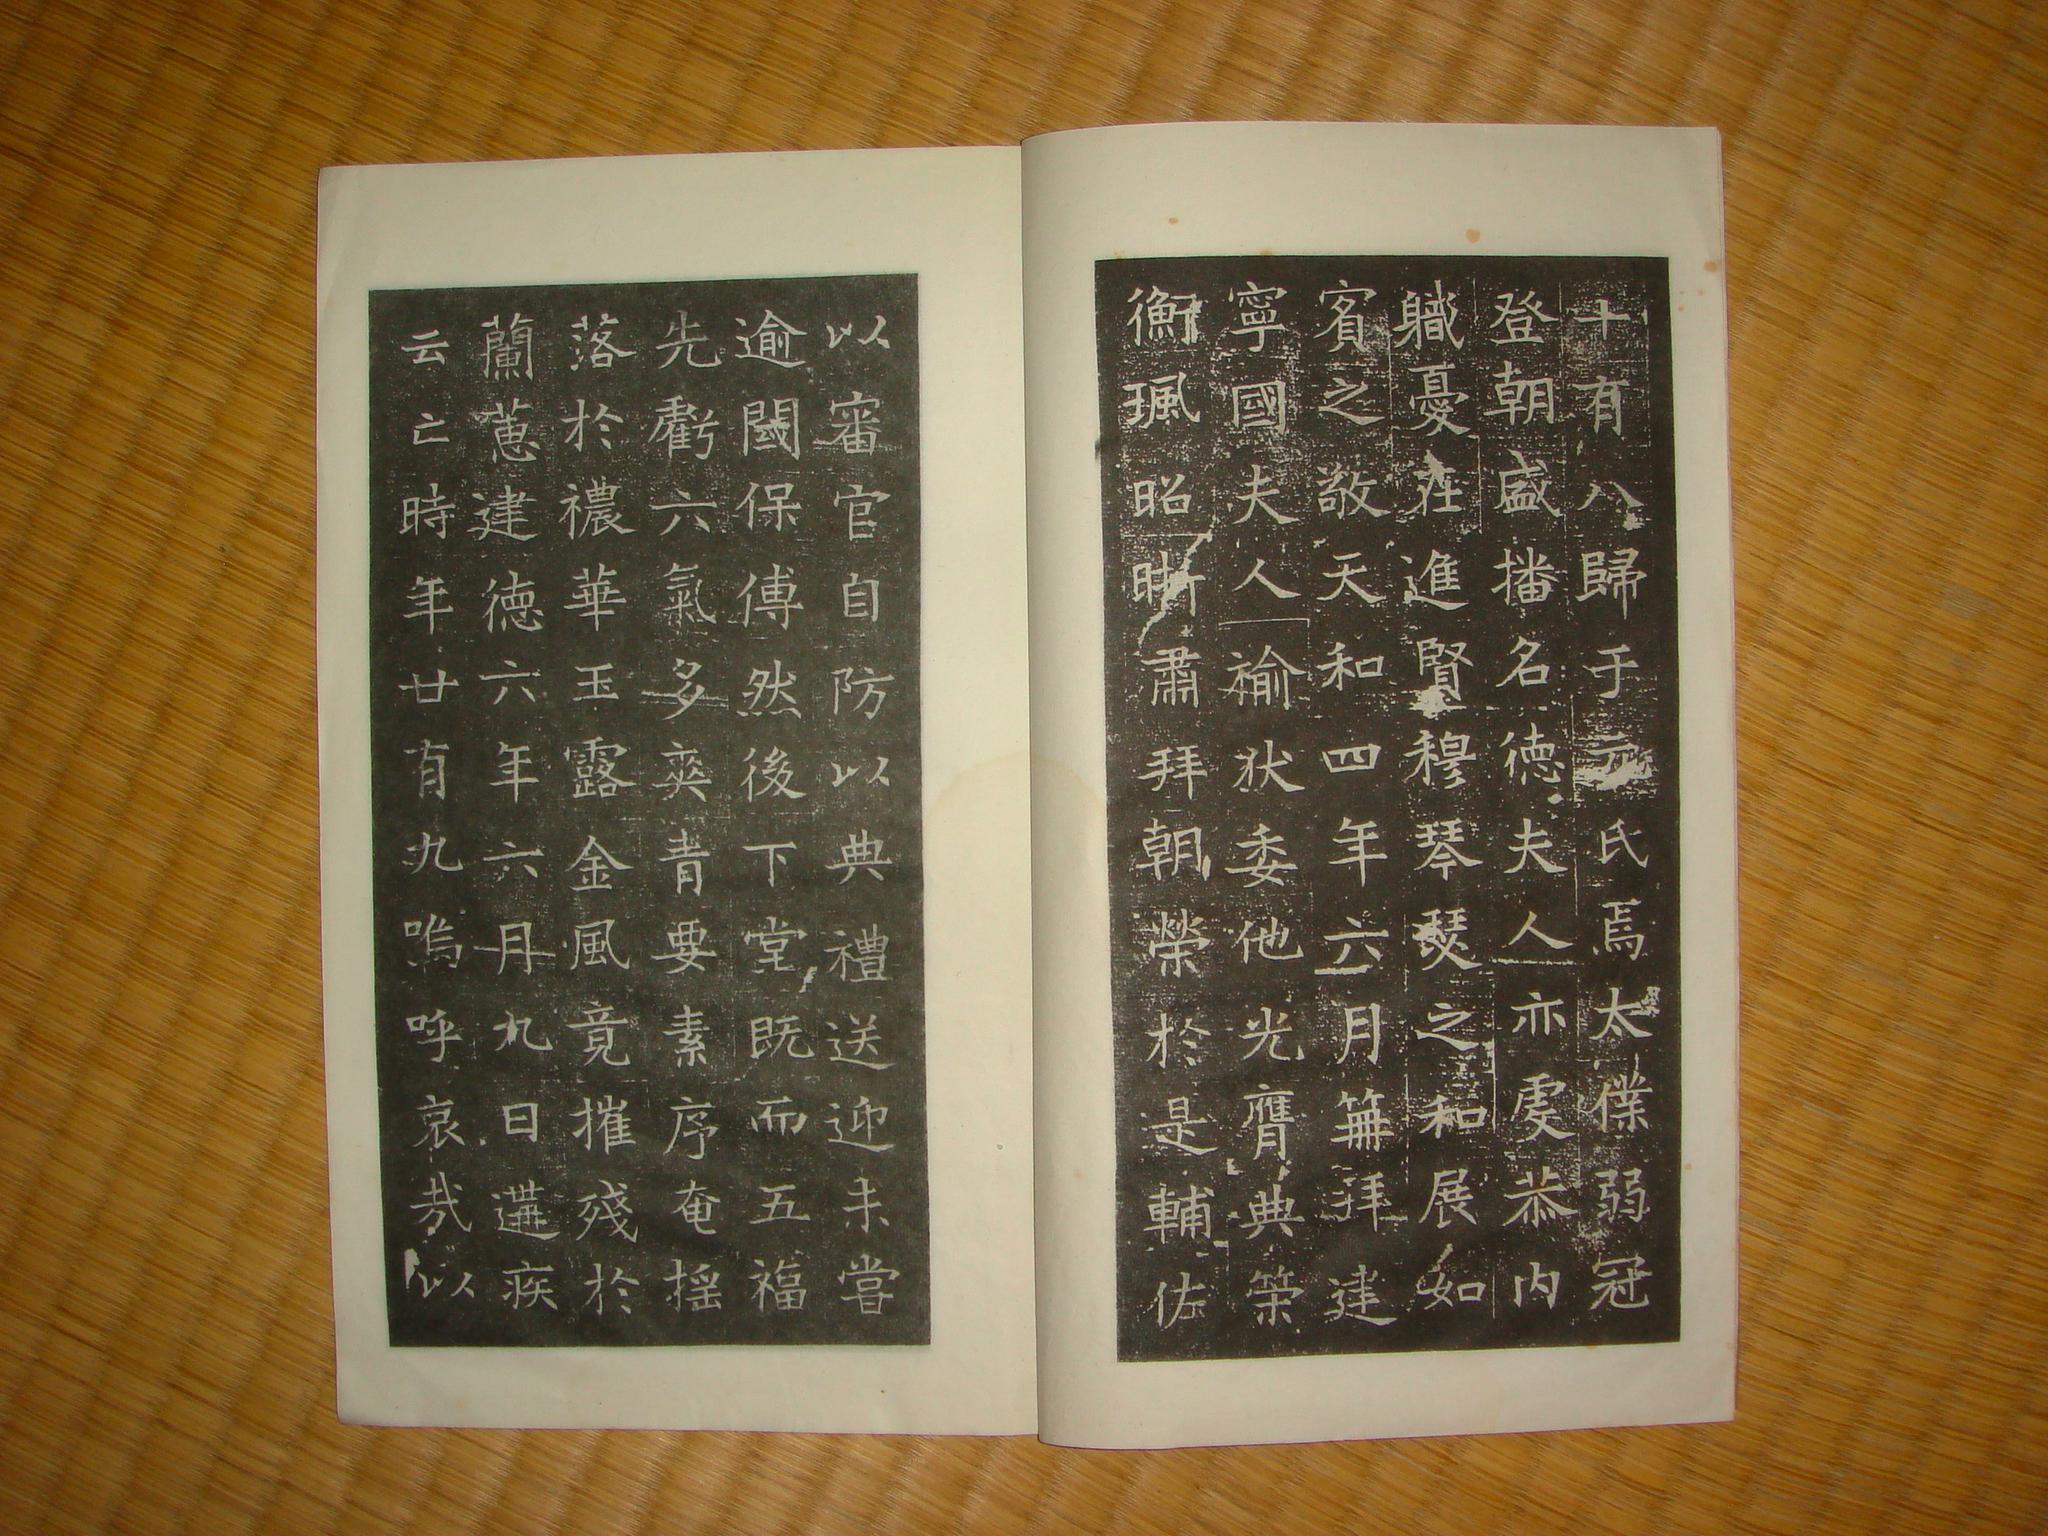 十有八歸于元氏焉太僕弱冠
登朝盛播名德夫人亦虔恭内
職憂在進賢穆琴瑟之和展如
賓之敬天和四年六月筞拜建
寧國夫人褕狄委他光膺典策
衡珮昭晣肅拜朝榮於是輔佐
以審官自防以典禮送迎未嘗
逾閾保傅然後下堂既而五福
先虧六氣多爽青要素序奄摇
落於禯華玉露金風竟摧殘於
蘭蕙建德六年六月九日遘疾
云亡時年廿有九嗚呼哀哉以